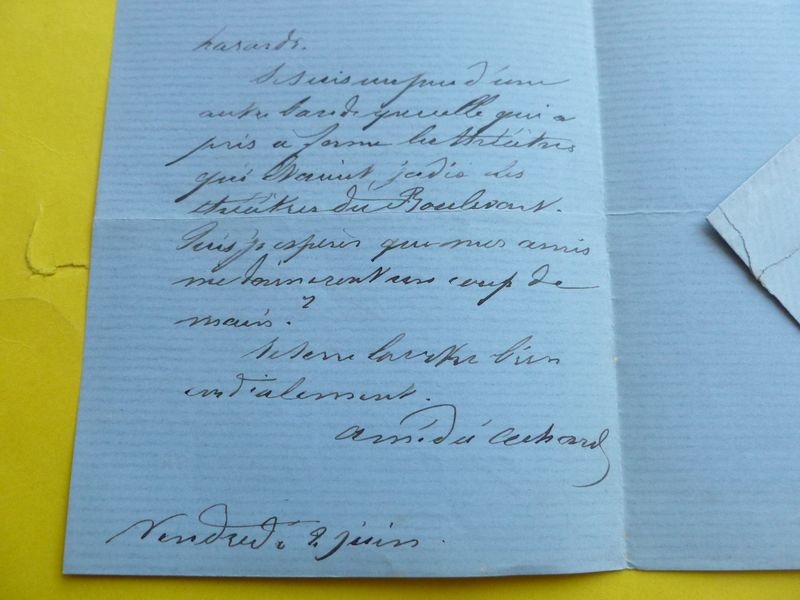 hasarde.
Je suis un peu d'une
autre bande que celle qui a
pris à ferme les théâtres
qui étaient jadis les
théâtres du Boulevart.
Puis je espérer que mes amis
me donneront un coup de
main ?
Je serre la votre bien
cordialement.
Amédée Achard
Vendredi 2 juin.